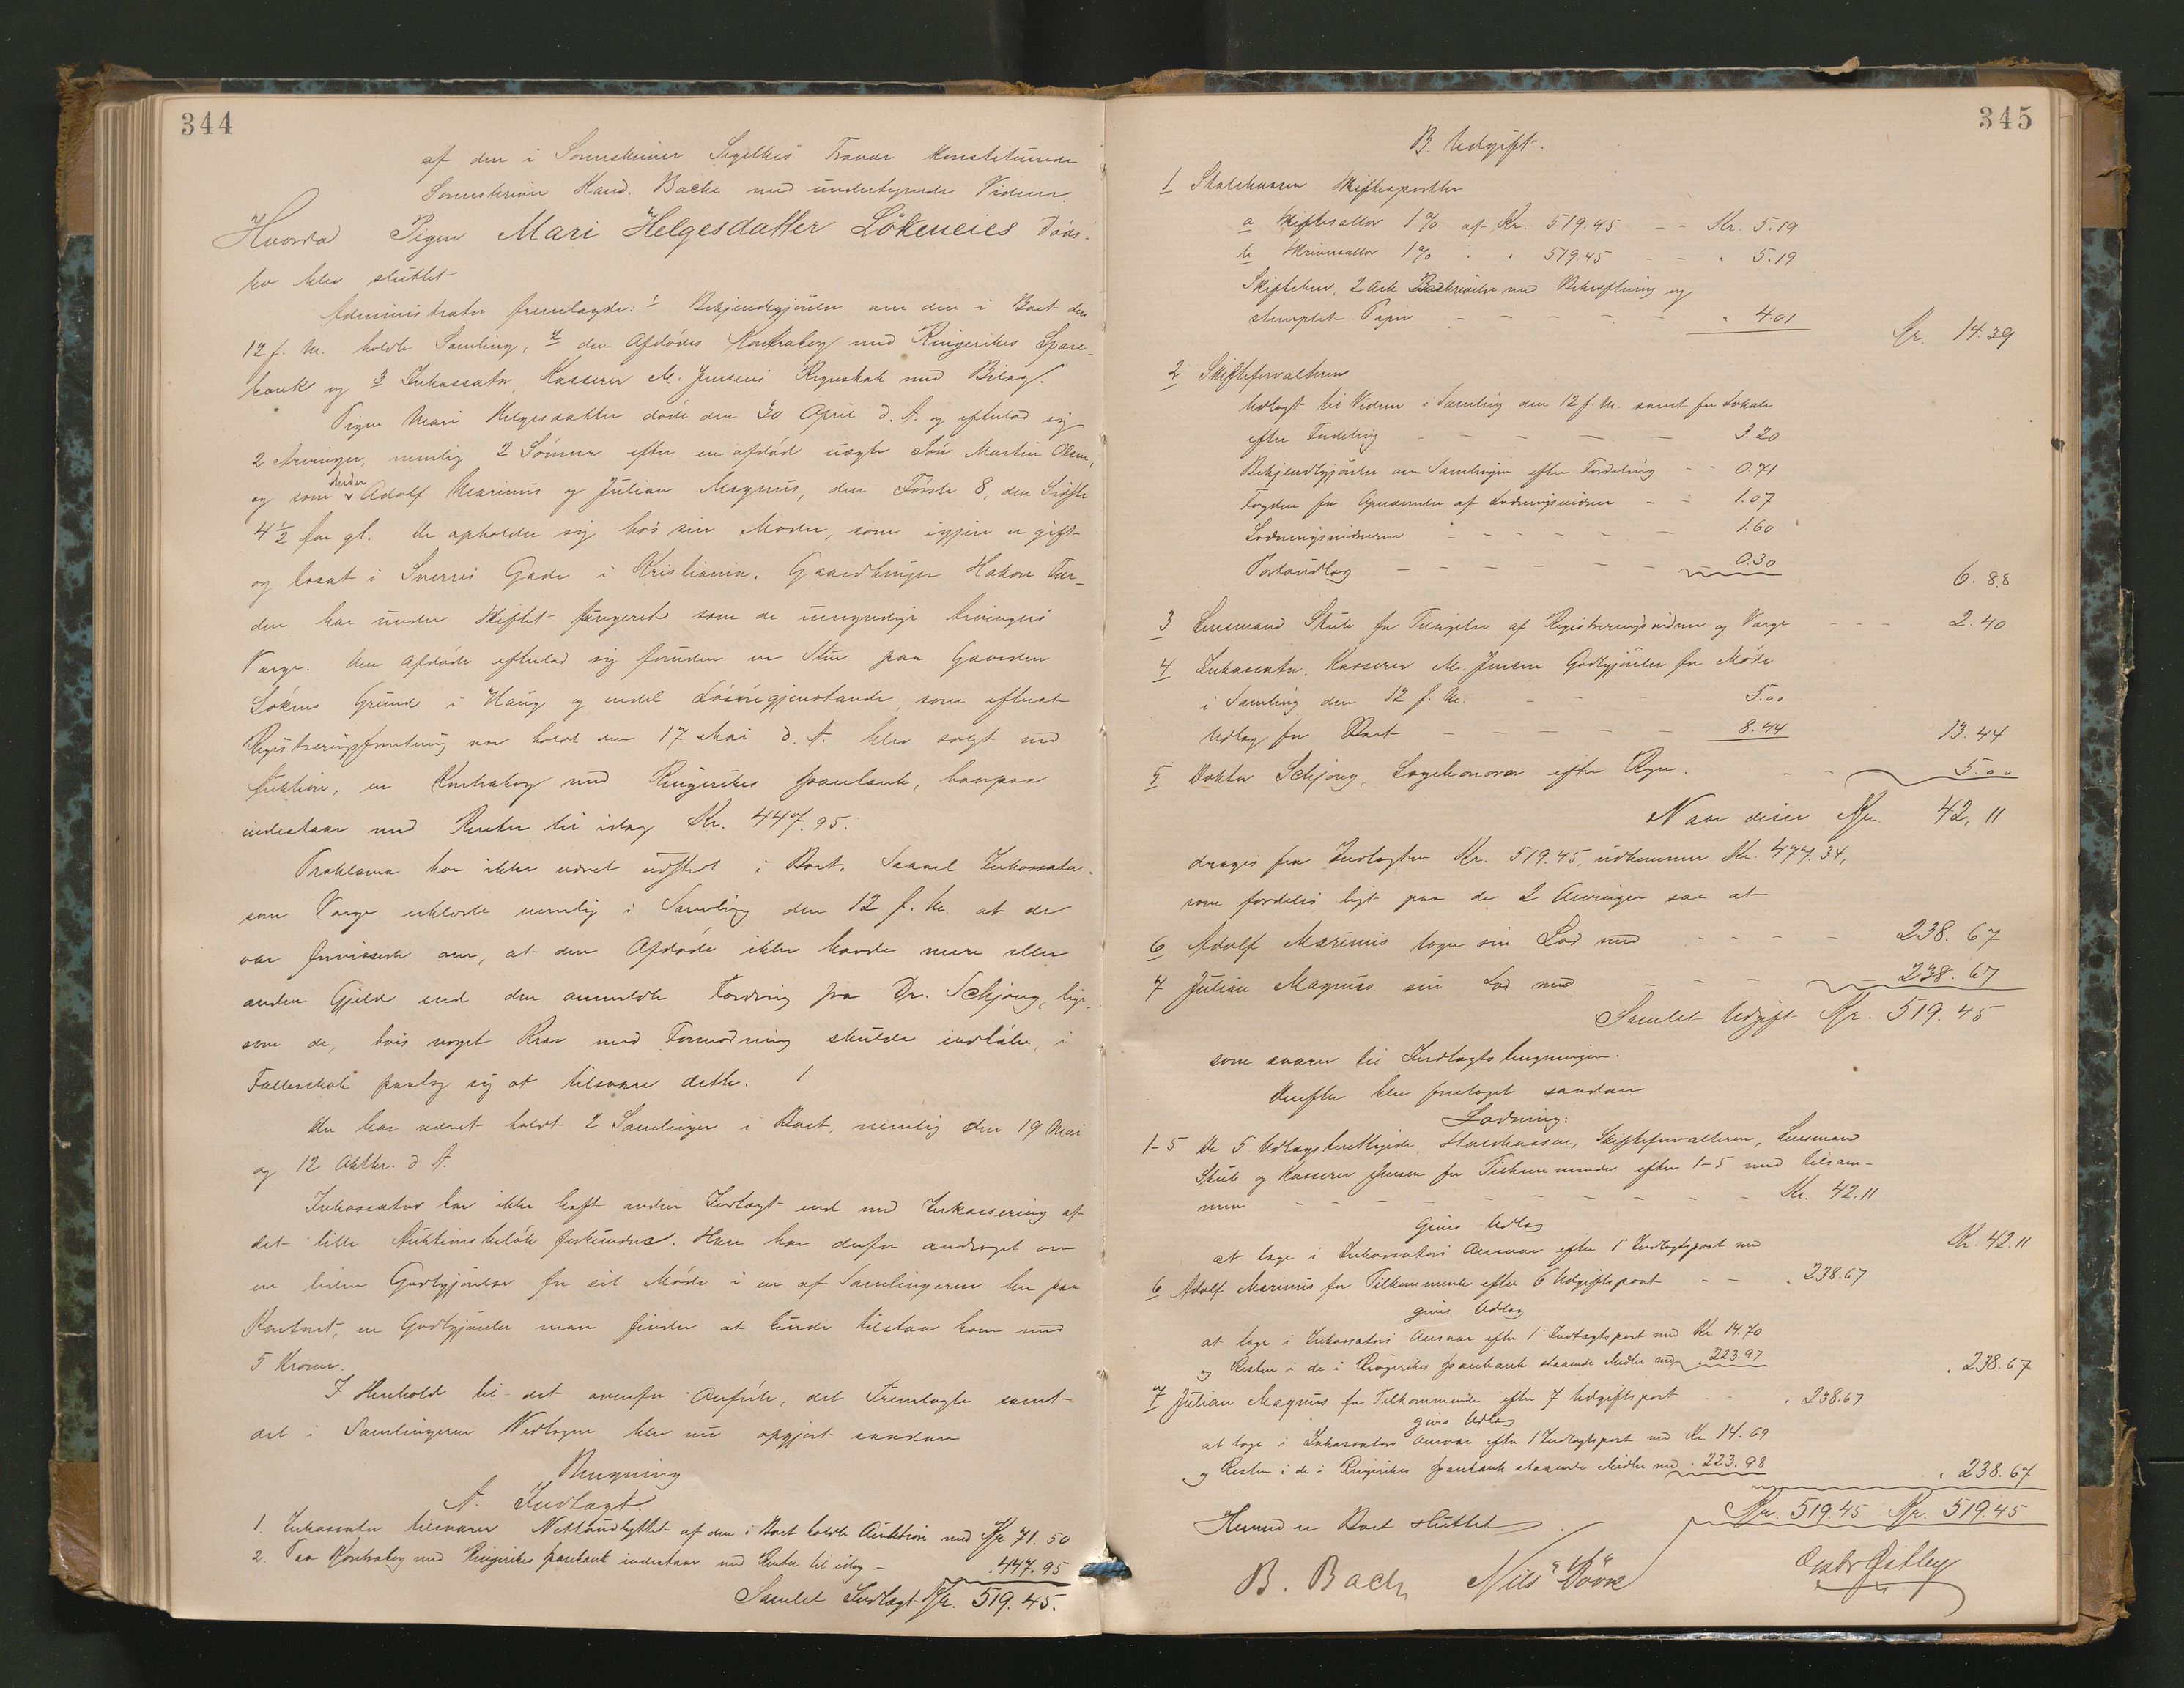 344
af den i Sorenskriver Segelkes Fravær konstituerede
Sorenskriver Kand. Bache med undertegnede Vidner.
Hvorda Pigen Mari Helgesdatter Lökeneies Døds-
bo blev sluttet
Administrator fremlagde: 1 Bekjendtgjørelse om den i Boet den
12 f. M. holdte Samling, 2 den Afdødes Kontrabog med Ringerikes Spare-
bank og 3 Inkassator, Kasserer M. Jensens Regnskab med Bilag.
Pigen Mari Helgesdatter døde den 30 April d. A. og efterlod sig
2 Arvinger, nemlig 2 Sønner efter en afdød uægte Søn Martin Olsen,
og som heder Adolf Marinius og Julian Magnus, den Første 8, den Sidste
4 1/2 Aar gl. De opholder sig hos sin Moder, som igjen er gift
og bosat i Sverres Gade i Kristiania. Gaardbruger Hakon
den har under Skiftet fungeret som de umyndige Arvingers
Værge. Den Afdøde efterlod sig foruden en Stue paa Gaarden
Løkens Grund i Haug og endel Løsøregjenstande, som efterat
Registreringsforretning var holdt den 17 Mai d. A. blev solgt ved
Auktion, en Kontrabog med Ringerikes Sparebank, hvorpaa
indestaar med Renter til idag Kr. 447.95.
Proklama har ikke været udstedt i Boet. Saavel Inkassator
som Værge erklærte nemlig i Samling den 12 f. M. at de
var forvissede om, at den Afdøde ikke havde mere eller
anden Gjeld end den anmeldte Fordring fra Dr. Schjøng, lige-
som de, hvis noget Krav mod Formodning skulde indløbe, i
Fællesskab paatog sig at tilsvare dette.
Der har været holdt 2 Samlinger i Boet, nemlig den 19 Mai
og 12 Oktbr. d. A.
Inkassator har ikke havt anden Indtægt end ved Inkassering af
det lille Auktionsbeløb . Han har derfor andraget om
en liden Godtgjørelse for sit Møde i en af Samlingerne her paa
Kontoret, en Godtgjørelse man finder at burde tilstaa ham med
5 Kroner.
I Henhold til det ovenfor Anførte, det Fremlagte samt
det i Samlingerne Vedtagne blev nu opgjort saadan
Beregning
A. Indtægt.
1. Inkassator tilsvarer Nettoudbyttet af den i Boet holdte Auktion med Kr. 71.50
2. Paa Kontrabog med Ringerikes Sparebank indestaar med Renter til idag - . 447.95
Samlet Indtægt Kr. 519.45.
345
B. Udgift.
1 Statskassen Skiftesportler
a Skifteskat 1% af Kr. 519.45 - - Kr. 5.19
b Skriversallær 1% " " 519.45 - - " 5.19
Skiftebrev, 2 Ark Beskrivelse med Bekræftning og
stemplet Papir - - - - - " 4.01 Kr. 14.39
2 Skifteforvalteren
Udlagt til Vidner i Samling den 12 f. M. samt for Lokale
efter Fordeling - - - - - 3.20
Bekjendtgjørelse om Samlingen efter Fordeling - - 0.71
Fogden for Opnævnelse af Lodningsvidner - - 1.07
Lodningsvidnerne - - - - - 1.60
Portoudlæg - - - - - 0.30 6.88
3 Lensmand Skule for Tilsigelse af Registreringsvidner og Værge - - - 2.40
4 Inkassator, Kasserer M. Jensen Godtgjørelse for Møde
i Samling den 12 f. M. - - - 5.00
Udlæg for Boet - - - - - 8.44 13.44
5 Doktor Schjøng, Lægehonorar efter Regn. - - 5.00
Naar disse Kr. 42.11
drages fra Indtægten Kr. 519.45, udkommer Kr. 477.34,
som fordeles ligt paa de 2 Arvinger saa at
6 Adolf Marinius tager sin Lod med - - - - 238.67
7 Julian Magnus sin Lod med - - - 238.67
Samlet Udgift Kr. 519.45
som svarer til Indtægtsberegningen.
Derefter blev foretaget saadan
Lodning:
1-5 De 5 Udlægsberettigede, Statskassen, Skifteforvalteren, Lensmand
Skule og Kasserer Jensen for Tilkommende efter 1-5 med tilsam-
men - - - - - - - - Kr. 42.11
gives Udlæg
at tage i Inkassators Ansvar efter 1 Indtægtspost med Kr. 42.11
6 Adolf Marinius for Tilkommende efter 6 Udgiftspost - - . 238.67
gives Udlæg
at tage i Inkassators Ansvar efter 1 Indtægtspost med Kr. 14.70
og Resten i de i Ringerikes Sparebank staaende Midler med . 223.97 . 238.67
7 Julian Magnus for Tilkommende efter 7 Udgiftspost - - . 238.67
gives Udlæg
at tage i Inkassators Ansvar efter 1 Indtægtspost med Kr. 14.69
og Resten i de i Ringerikes Sparebank staaende Midler med . 223.98 . 238.67
Kr. 519.45 Kr. 519.45
Hermed er Boet sluttet.
B. Bache Nils